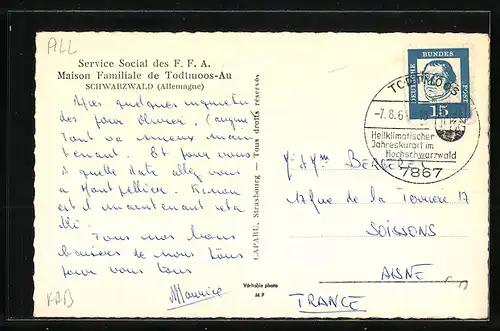 ALL
Service Social des F. F. A.
Maison Familiale de Todtmoos-Au
SCHWARZWALD (Allemagne)
Après quelques inquiétu
des pour Olivier
tout va mieux main
tenant. Et pour vous
à quelle date allez vous
à Montpellier.
est il maintenant réta
bli
Tous nos bons
baisers de nous tous
pour vous tous
Maurice
CAPARU, Strasbourg — Tous droits réservés
Véritable photo
M.P
DEUTSCHE
BUNDES
POST
15
TODTMOOS
-7.8.6
Heilklimatischer
Jahreskurort im
Hochschwarzwald
7867
M. & Mme BERGERET
17 rue de la Terrière 17
SOISSONS
AISNE
FRANCE